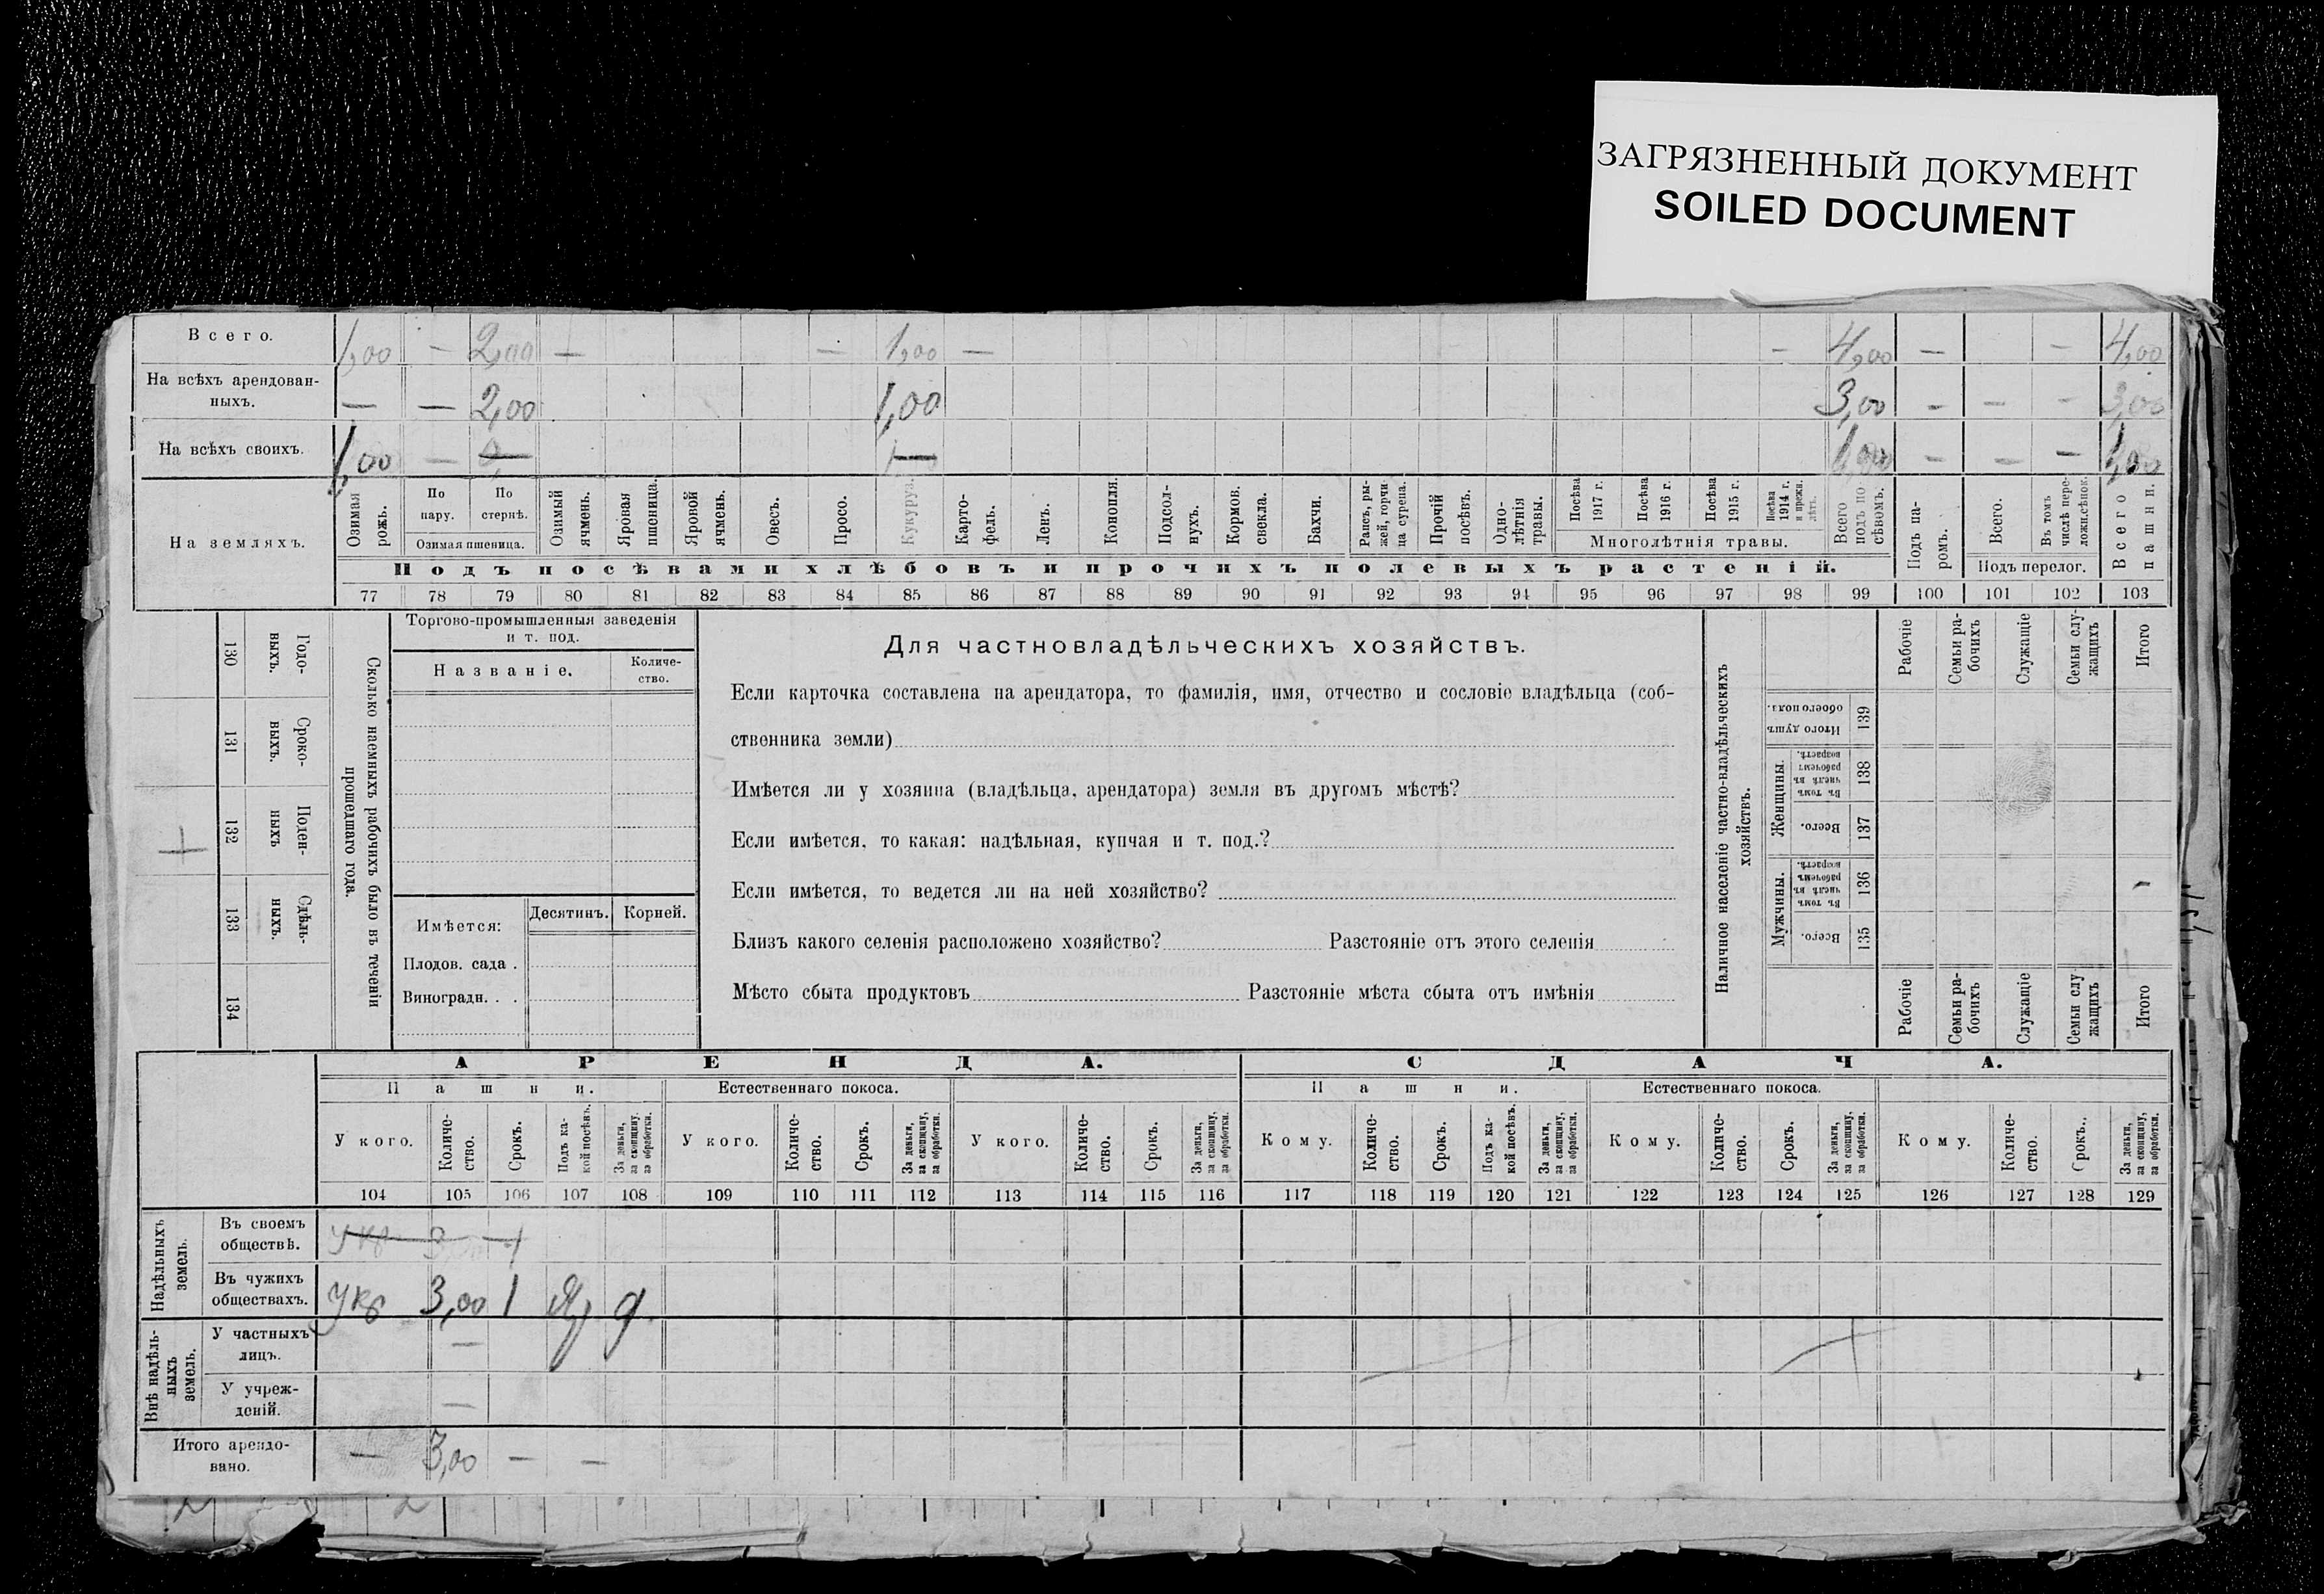 ЗАГРЯЗНЕННЫЙ ДОКУМЕНТ
SOILED DOCUMENT
Всего. 1,00 — 2,00 — — 1,00 — — 4,00 — — 4,00
На всѣхъ арендован-
ныхъ. — — 2,00 1,00 3,00 — — — 3,00
На всѣхъ своихъ. 1,00 — — — 1,00 — — — 1,00
На земляхъ.
Озимая рожь.
По пару.
По стернѣ.
Озимая пшеница.
Озимый ячмень.
Яровая пшеница.
Яровой ячмень.
Овесъ.
Просо.
Кукуруза.
Карто-
фель.
Ленъ.
Конопля.
Подсол-
нухъ.
Кормов. свекла.
Бахчи.
Рапсъ, ры-
жей, горчи-
ца сурепа.
Прочій посѣвъ.
Одно-
лѣтнія травы.
Посѣва 1917 г.
Посѣва 1916 г.
Посѣва 1915 г.
Посѣва 1914 г. и прежн. лѣтъ.
Многолѣтнія травы.
Всего подъ по-
сѣвомъ.
Подъ па-
ромъ.
Всего.
Въ томъ числѣ пере-
ложн.сѣнок.
Подъ перелог.
Всего пашни.
Подъ посѣвами хлѣбовъ и прочихъ полевыхъ растеній.
77 78 79 80 81 82 83 84 85 86 87 88 89 90 91 92 93 94 95 96 97 98 99 100 101 102 103
130 Годо-
выхъ.
131 Сроко-
выхъ.
132 Поден-
ныхъ
133 Сдѣль-
ныхъ.
134
Сколько наемныхъ рабочихъ было въ теченіи
прошедшаго года.
Торгово-промышленныя заведенія
и т. под.
Названіе. Количе-
ство.
Имѣется: Десятинъ. Корней.
Плодов. сада .
Виноградн. . .
Для частновладѣльческихъ хозяйствъ.
Если карточка составлена на арендатора, то фамилія, имя, отчество и сословіе владѣльца (соб-
ственника земли)
Имѣется ли у хозяина (владѣльца, арендатора) земля въ другомъ мѣстѣ?
Если имѣется, то какая: надѣльная, купчая и т. под.?
Если имѣется, то ведется ли на ней хозяйство?
Близъ какого селенія расположено хозяйство? Разстояніе отъ этого селенія
Мѣсто сбыта продуктовъ Разстояніе мѣста сбыта отъ имѣнія
Наличное населеніе частно-владѣльческихъ
хозяйствъ.
Рабочіе
Семьи ра-
бочихъ
Служащіе
Семьи слу-
жащихъ
Итого
Итого душъ обоего пола. 139
Женщины.
Въ томъ числѣ въ рабочемъ возрастѣ. 138
Всего. 137
Мужчины.
Въ томъ числѣ въ рабочемъ возрастѣ. 136
Всего. 135
Рабочіе
Семьи ра-
бочихъ
Служащіе
Семьи слу
жащихъ
Итого
АРЕНДА. СДАЧА.
Пашни. Естественнаго покоса. Пашни. Естественнаго покоса.
У кого. Количе-
ство. Срокъ. Подъ ка-
кой посѣвъ. За деньги, за скопщину, за обработки.
У кого. Количе-
ство. Срокъ. За деньги, за скопщину, за обработки.
У кого. Количе-
ство. Срокъ. За деньги, за скопщину, за обработки.
Кому. Количе-
ство. Срокъ. Подъ ка-
кой посѣвъ. За деньги, за скопщину, за обработки.
Кому. Количе-
ство. Срокъ. За деньги, за скопщину, за обработки.
Кому. Количе-
ство. Срокъ. За деньги, за скопщину, за обработки.
104 105 106 107 108 109 110 111 112 113 114 115 116 117 118 119 120 121 122 123 124 125 126 127 128 129
Надѣльныхъ земель.
Въ своемъ
обществѣ. Укр 3,00 1
Въ чужихъ
обществахъ. Укр 3,00 1 д.
Внѣ надѣль-
ныхъ земель.
У частныхъ
лицъ. —
У учреж-
деній. —
Итого арендо-
вано. — 3,00 — —